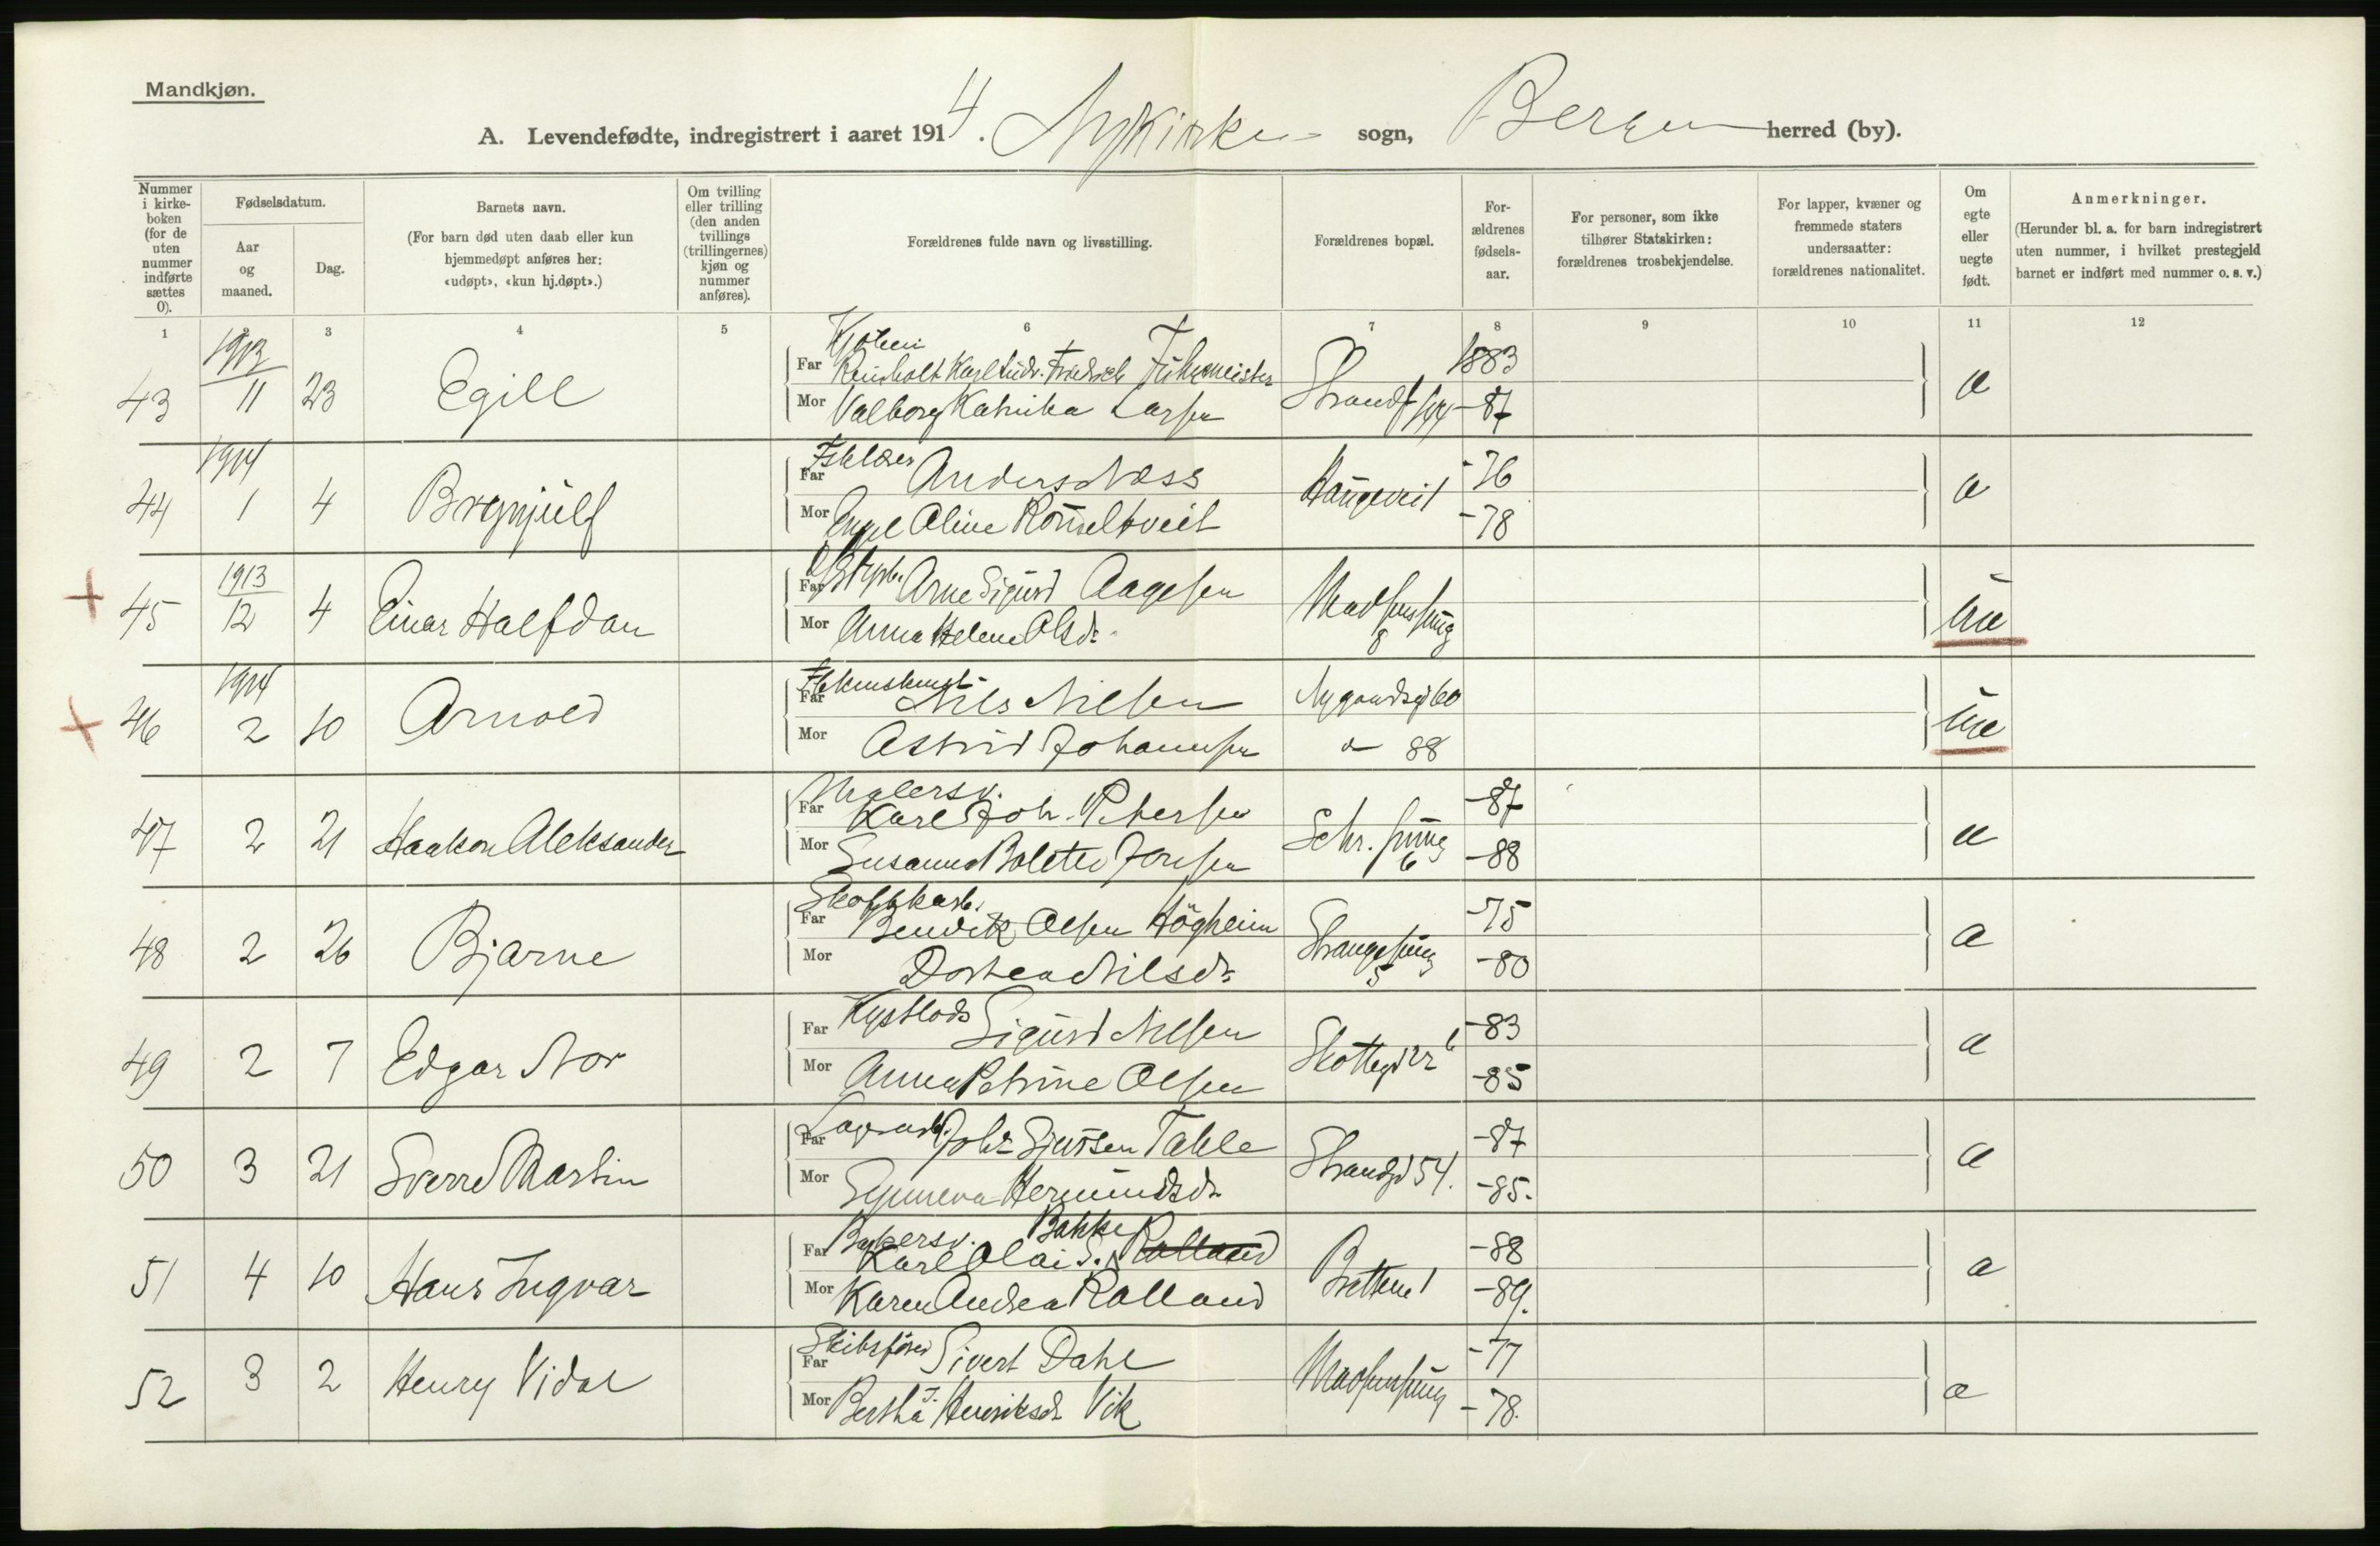 Mandkjøn.
A. Levendefødte, indregistrert i aaret 1914. Nykirke sogn, Bergen herred (by).
Nummer i kirke-boken (for de uten nummer indførte sættes 0).
Fødselsdatum.
Aar og maaned.
Dag.
Barnets navn.
(For barn død uten daab eller kun hjemmedøpt anføres her: «udøpt», «kun hj.døpt».)
Om tvilling eller trilling (den anden tvillings (trillingernes) kjøn og nummer anføres).
Forældrenes fulde navn og livsstilling.
Forældrenes bopæl.
For-ældrenes fødsels-aar.
For personer, som ikke tilhører Statskirken: forældrenes trosbekjendelse.
For lapper, kvæner og fremmede staters undersaatter: forældrenes nationalitet.
Om egte eller uegte født.
Anmerkninger.
(Herunder bl. a. for barn indregistrert uten nummer, i hvilket prestegjeld barnet er indført med nummer o. s. v.)
1 2 3 4 5 6 7 8 9 10 11 12
1913
43 11 23 Egill
Far Karl Fredrich 1883
Mor Valborg Larsen -87 a
1914
44 1 4 Brynjulf
Far Anders Næss Haugeveit -76
Mor Aline -78 a
1913
+ 45 12 4 Einar Halfdan
Far Arne Sigurd Aagesen
Mor Anna Helene Olsdr. 8 ue
1914
+ 46 2 10 Arnold
Far Nils Nilsen Nygaardsgd 60
Mor Astrid Johannesen 88 ue
47 2 21 Haakon Aleksander
Malersv.
Far Karl Joh. Petersen -87
Mor Susanna Bolette Jensen 6 -88 a
48 2 26 Bjarne
Far Bendik Olsen Högheim -75
Mor Dorthea Nilsdr. 5 -80 a
49 2 7 Edgar Nor
Far Kystlods Sigurd Nilsen -83
Mor Anna Petrine Olsen -85 a
50 3 21 Sverre Martin
Far Johs Sjursen Takle Strandgd 54. -87
Mor Synneva Hermundsdr. -85. a
51 4 10 Hans Ingvar
Bakersv. Bakke
Far Karl Olai S. Rolland -88
Mor Karen Andrea Rolland -89. a
52 3 2 Henry Vidar
Skibsfører
Far Sivert Dahl -77
Mor Bertha J. Henriksdr Vik -78. a